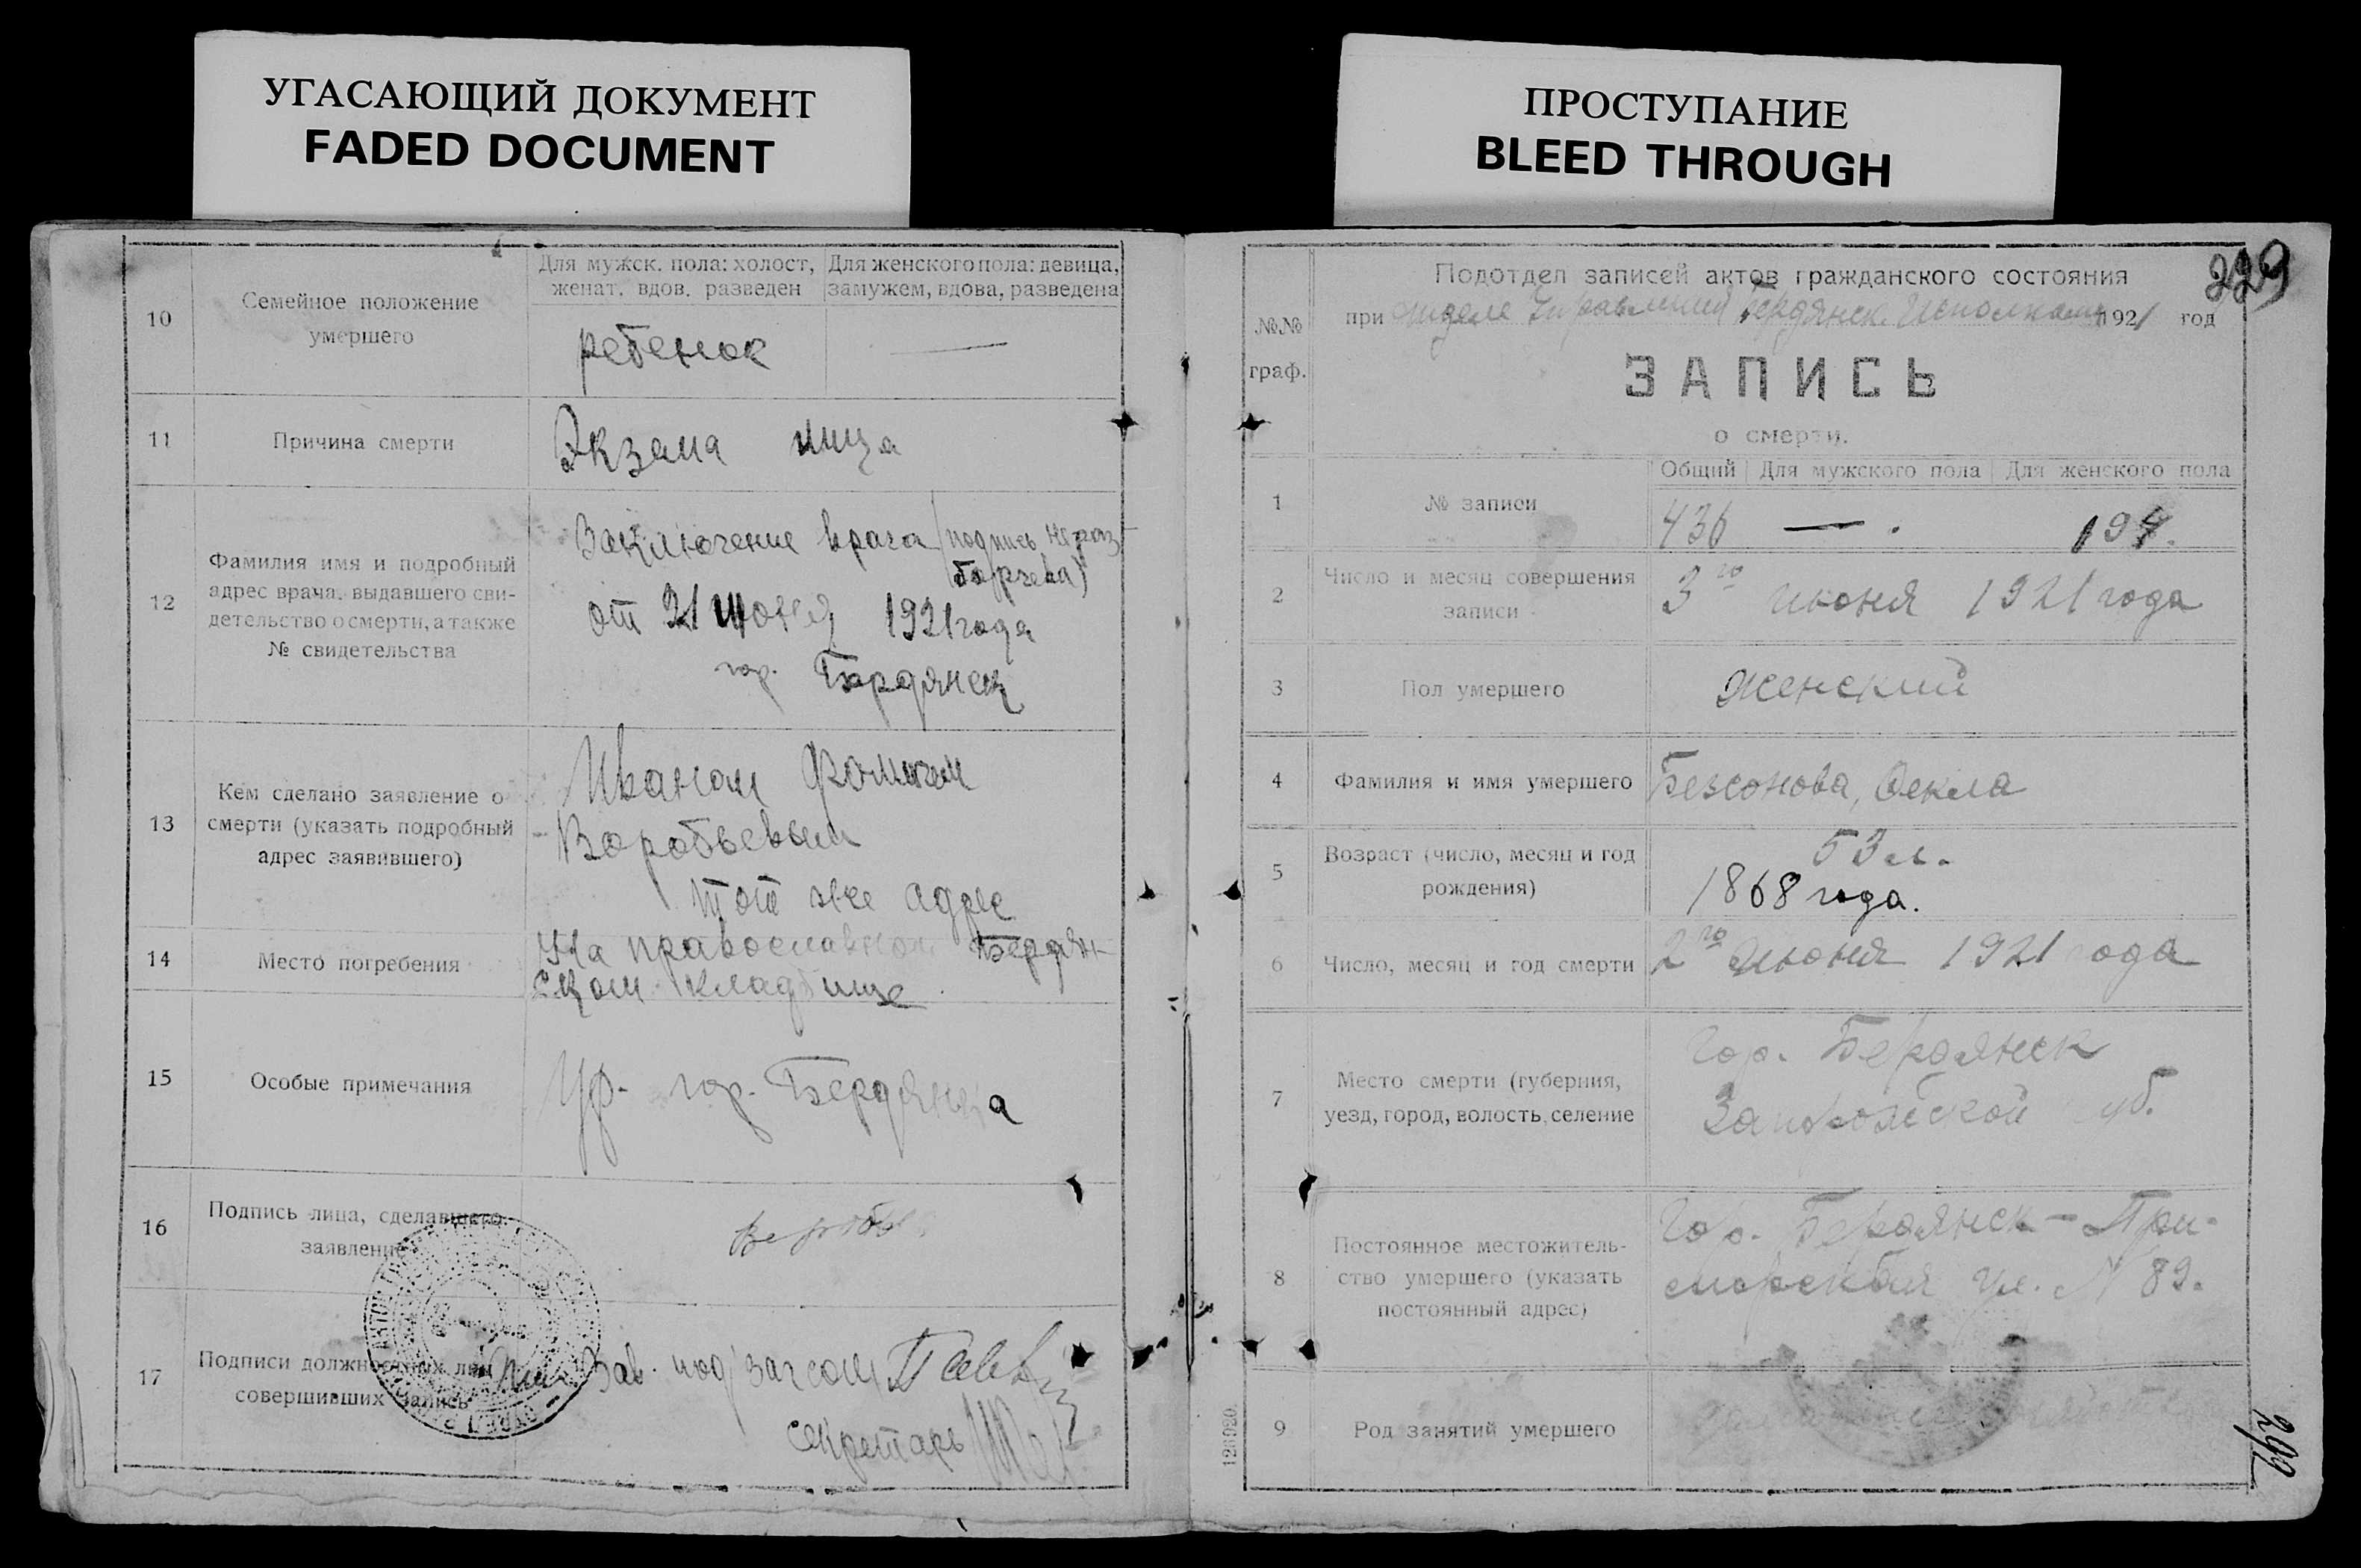 УГАСАЮЩИЙ ДОКУМЕНТ
FADED DOCUMENT
10
Семейное положение
умершего
Для мужск. пола: холост,
женат, вдов, разведен
Для женского пола: девица,
замужем, вдова, разведена
ребенок
11
Причина смерти
Экзема лица
12
Фамилия имя и подробный
адрес врача, выдавшего сви-
детельство о смерти, а также
№ свидетельства
Заключение врача (подпись нераз-
борчева)
от 21 Июня 1921 года
гор. Бердянск
13
Кем сделано заявление о
смерти (указать подробный
адрес заявившего)
Иваном Фомичем
Воробьевым
тот же адрес
14
Место погребения
На православном Бердян-
ском кладбище
15
Особые примечания
Ур. гор. Бердянска
16
Подпись лица, сделавшего
заявление
17
Подписи должностных лиц
совершивших запись
Зав. подзагсом
секретарь
ПРОСТУПАНИЕ
BLEED THROUGH
229
№№
граф.
Подотдел записей актов гражданского состояния
при отделе Управления Бердянск. Исполкома 1921 год
ЗАПИСЬ
о смерти.
1
№ записи
Общий
Для мужского пола
Для женского пола
436 — . 194.
2
Число и месяц совершения
записи
3го июня 1921 года
3
Пол умершего
женский
4
Фамилия и имя умершего
Безсонова, Фекла
5
Возраст (число, месяц и год
рождения)
53 л.
1868 года.
6
Число, месяц и год смерти
2го Июня 1921 года
7
Место смерти (губерния,
уезд, город, волость, селение
Гор. Бердянск
Запорожской губ.
8
Постоянное местожитель-
ство умершего (указать
постоянный адрес)
Гор. Бердянск – При-
морская ул. № 89.
9
Род занятий умершего
126920.
292